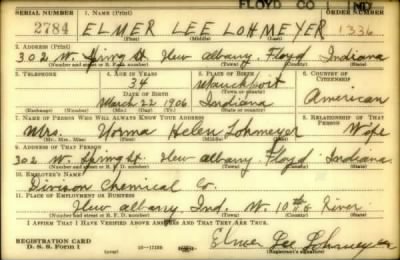 FLOYD CO 1 IND
SERIAL NUMBER 1. NAME (Print) ORDER NUMBER
2784 ELMER LEE LOHMEYER 1336
(First) (Middle) (Last)
2. ADDRESS (Print)
302 W. Spring St New Albany Floyd Indiana
(Number and street or R. F. D. number) (Town) (County) (State)
3. TELEPHONE 4. AGE IN YEARS 5. PLACE OF BIRTH 6. COUNTRY OF CITIZENSHIP
34 Mauckport
DATE OF BIRTH
March 22 1906 Indiana American
(Exchange) (Number) (Mo.) (Day) (Yr.) (State or country)
7. NAME OF PERSON WHO WILL ALWAYS KNOW YOUR ADDRESS 8. RELATIONSHIP OF THAT PERSON
Mrs. Norma Helen Lohmeyer Wife
(Mr., Mrs., Miss) (First) (Middle) (Last)
9. ADDRESS OF THAT PERSON
302 W. Spring St. New Albany Floyd Indiana
(Number and street or R. F. D. number) (Town) (County) (State)
10. EMPLOYER'S NAME
Divison Chemical Co.
11. PLACE OF EMPLOYMENT OR BUSINESS
New Albany Ind. W. 10th & River
(Number and street or R. F. D. number) (Town) (County) (State)
I AFFIRM THAT I HAVE VERIFIED ABOVE ANSWERS AND THAT THEY ARE TRUE.
REGISTRATION CARD
D. S. S. Form 1 16-17105 Elmer Lee Lohmeyer
(Registrant's signature)